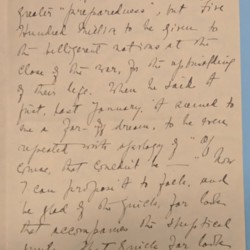 greater "preparedness", but five
hundred million to be given to
the belligerent nations at the
close of the war, for the upbuilding
of their life. When he said it
first, last January, it seemed to
me a far-off dream, to be even
repeated with apology of "Of
course, that couldn't be — Now
I can propose it to
be glad of the for
that accompanies the skeptical